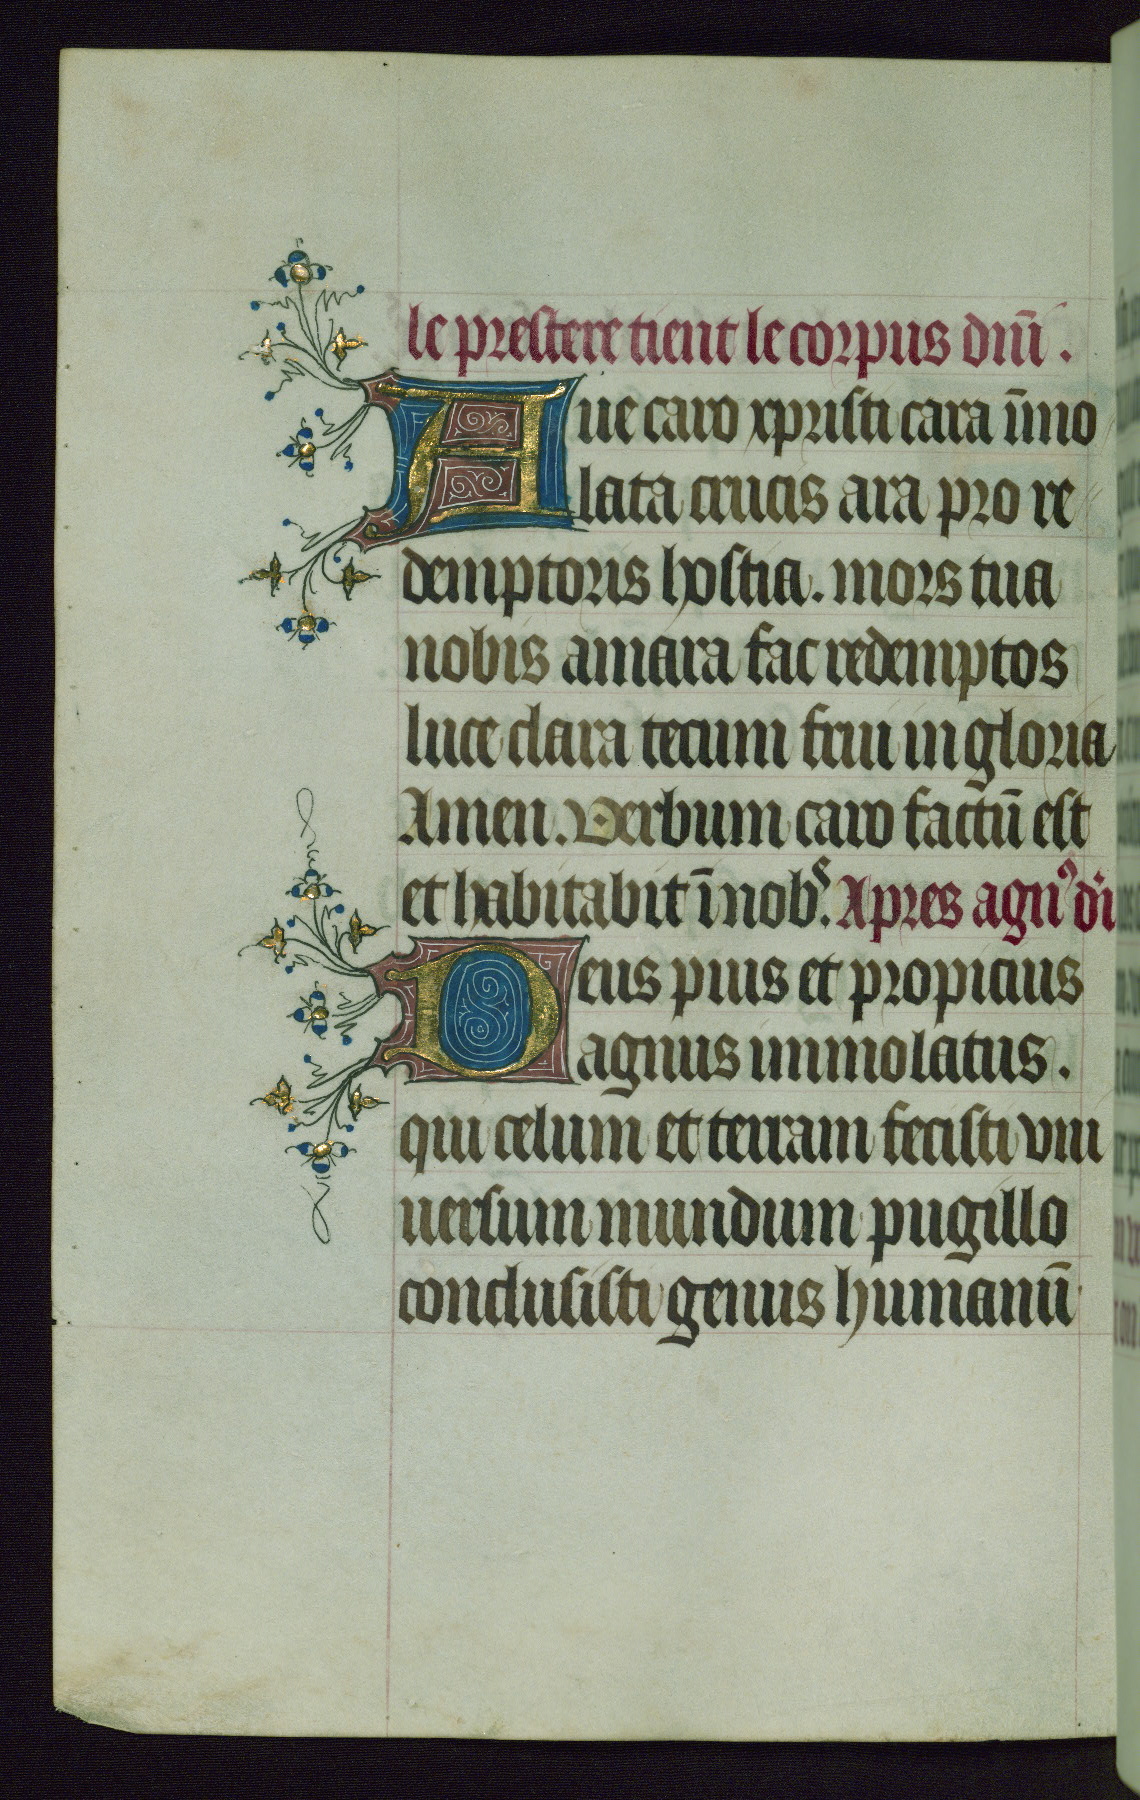 le prestere tient le corpus dnī.
Aue caro xpristi cara īmo
lata crucis ara pro re
demptoris hostia. mors tua
nobis amara fac redemptos
luce clara tecum frui in gloria
Amen. Verbum caro factū est
et habitabit ī nobˢ. Apres agnꝰ di
Deus pius et propicius
agnus immolatus.
qui celum et terram fecisti vni
uersum mundum pugillo
conclusisti genus humanū